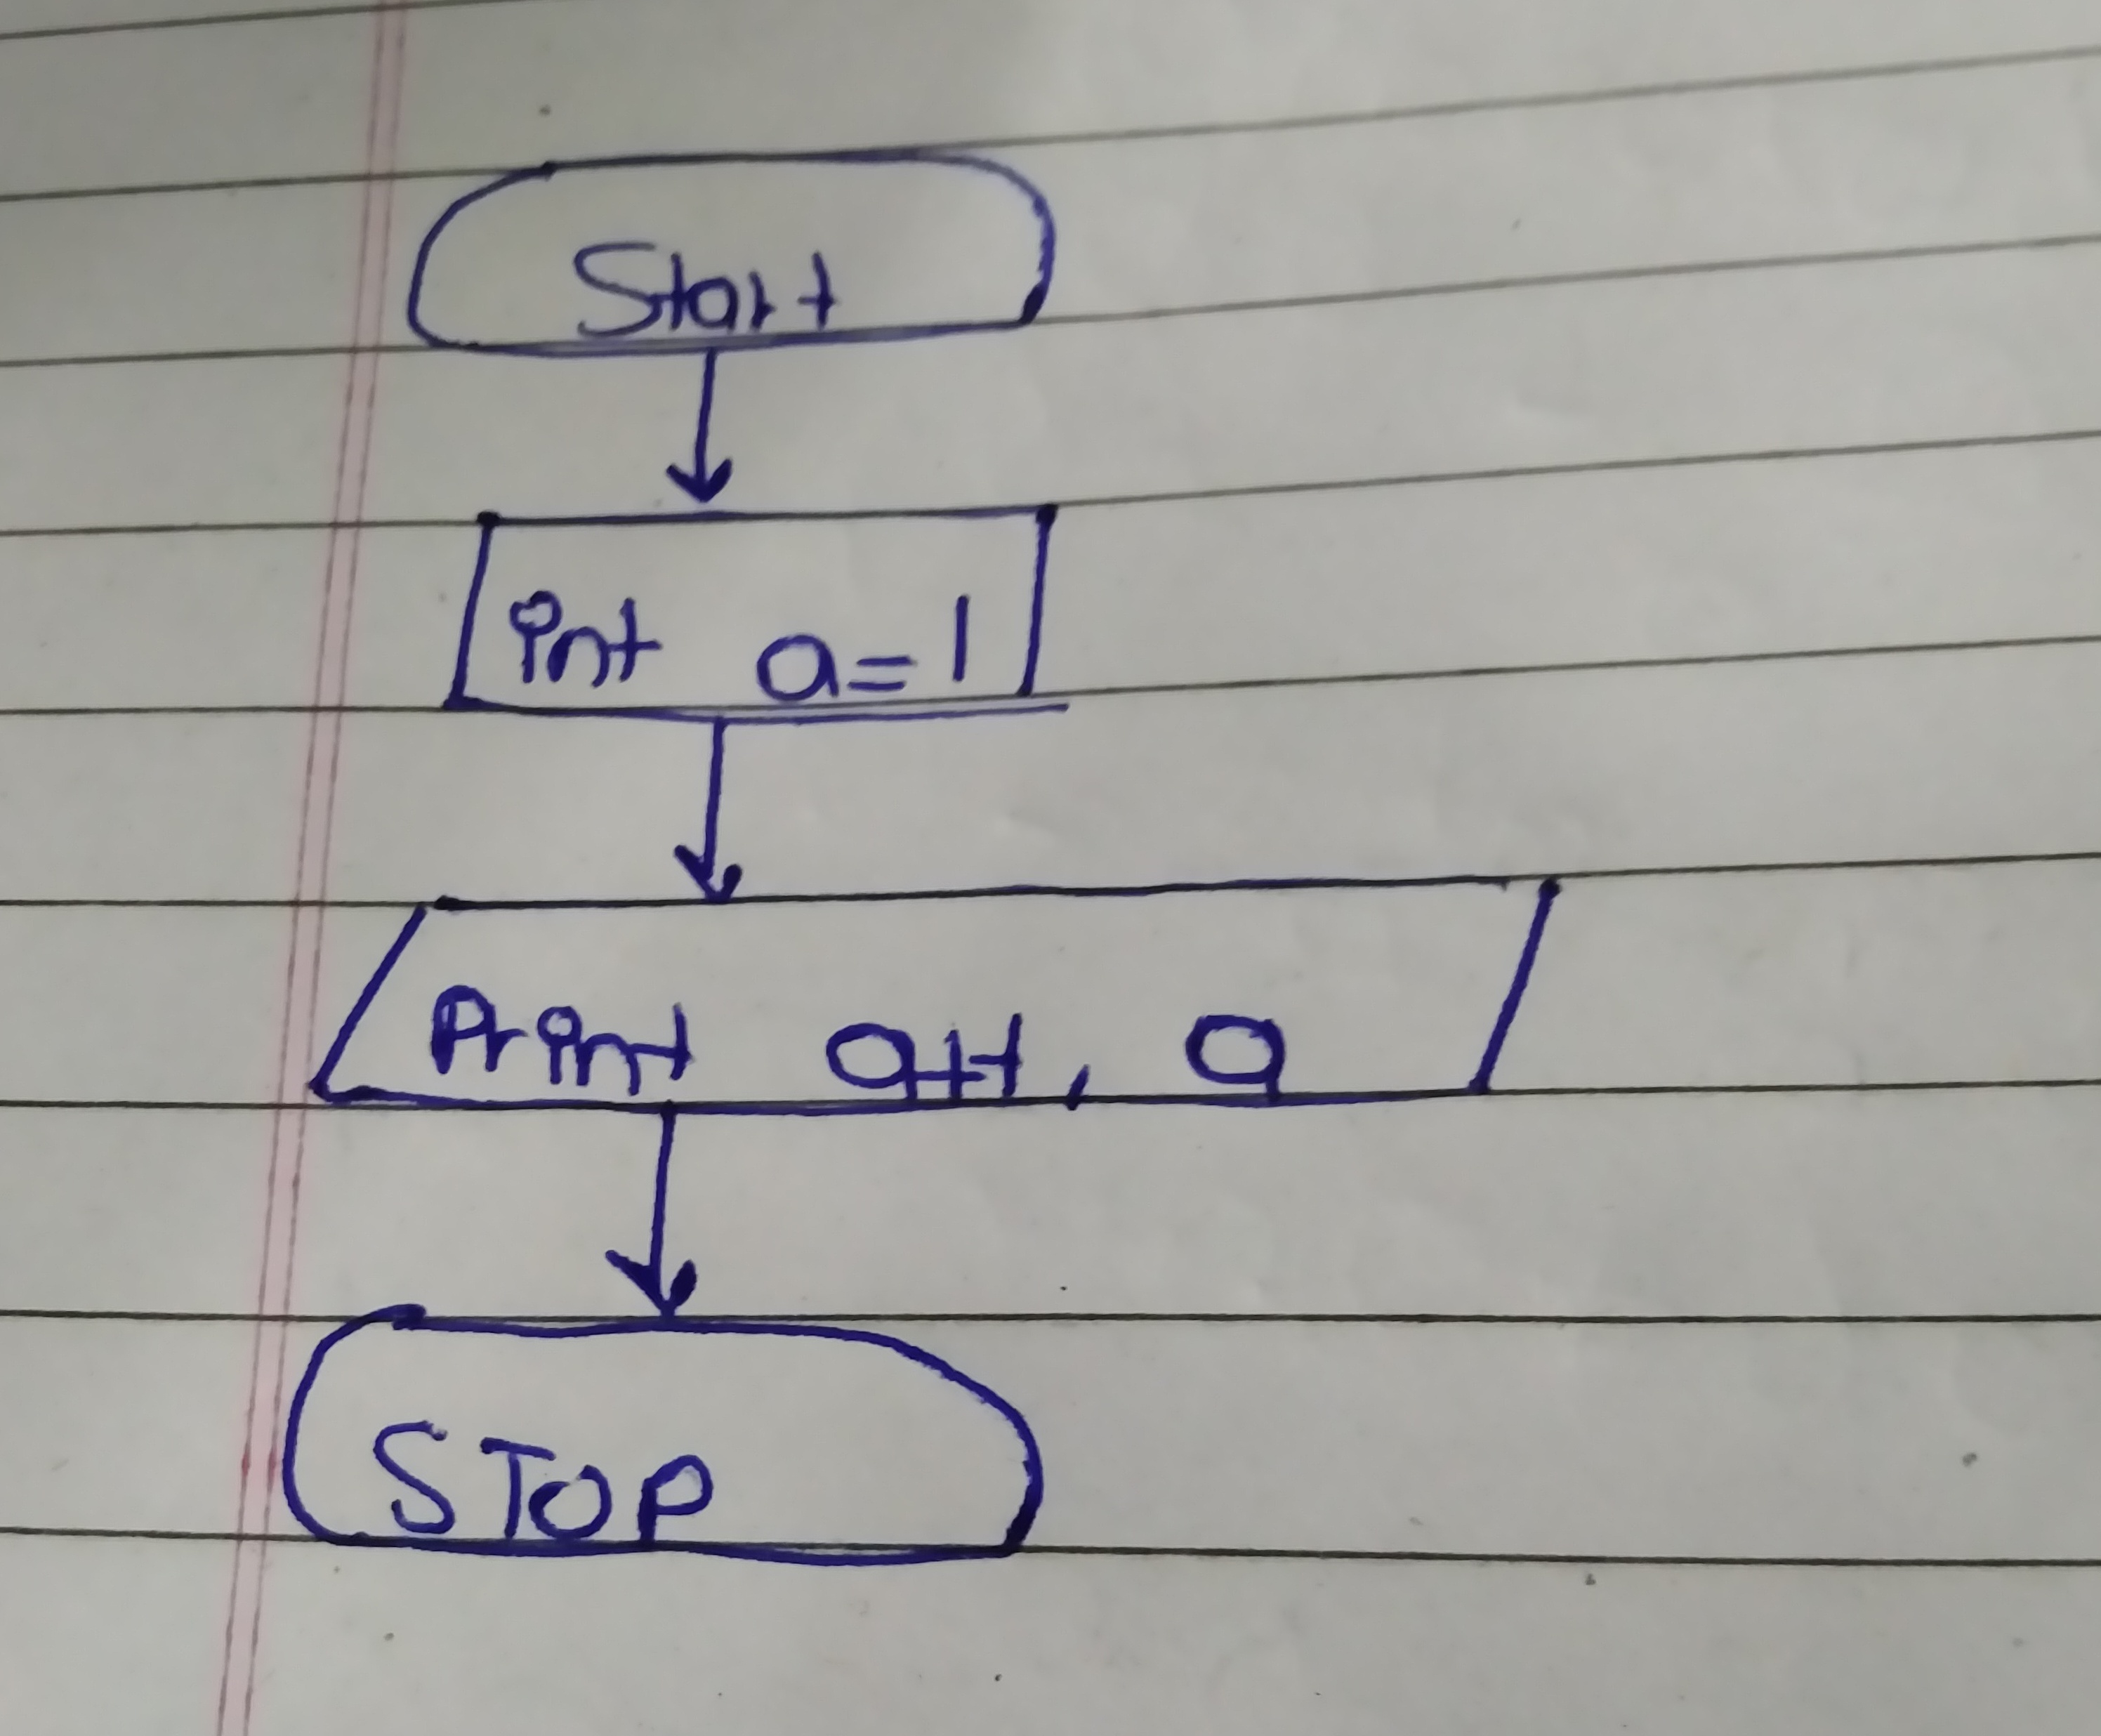 Start
int a=1
Print a++, a
STOP